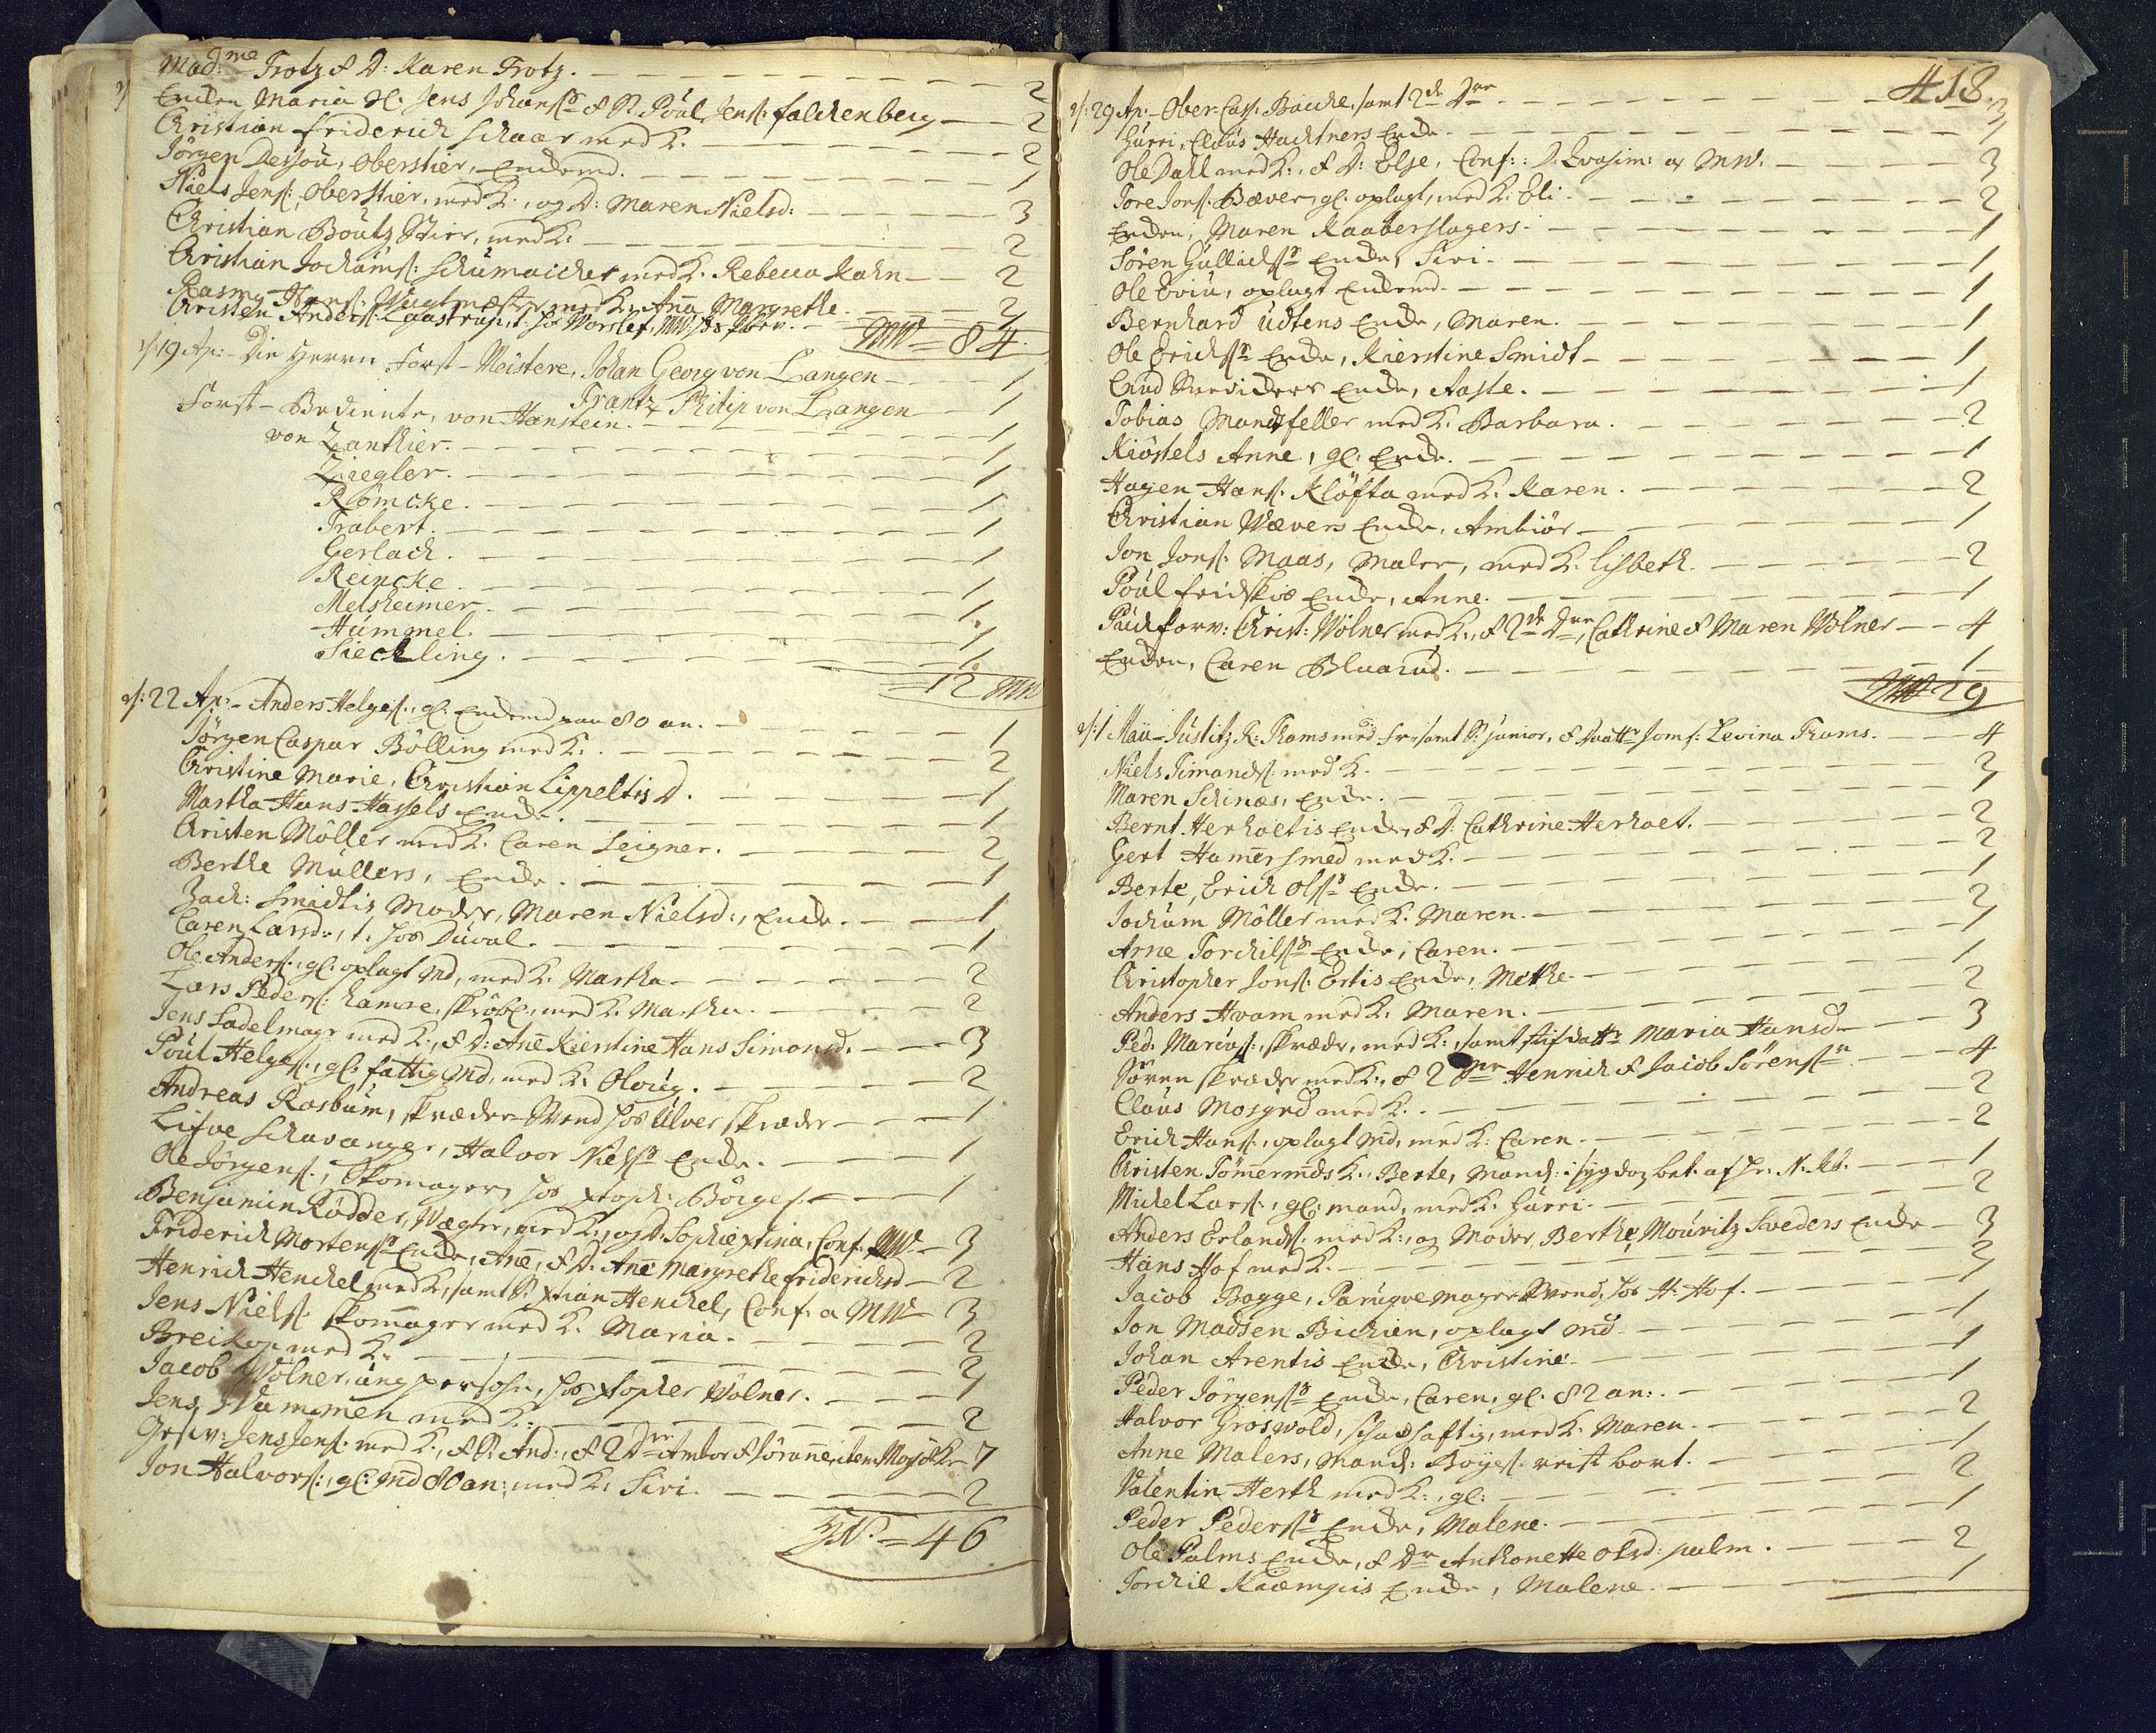 Mad:me Trotz & D: Karen Trotz. 2
Encken Maria Sl: Jens Johanss: & S. Poul Jens: falckenberg 2
Christian Friderich Schaar med K. 2
Jörgen Dessou, Oberstier, Enckemd. 1
Niels Jens:, Oberstier, med K:, og D: Maren Nielsd: 3
Christian Boutz Stier, med K: 2
Christian Jochums: Schumacher med K. Rebecca Kahn 2
Rasmg Hans: Wagtmester med K: Anna Margrethe 2
Christen Anders: Lgastrup, t. hos Worslef,
MW = 84.
d: 19 Ap: Die Herrn Forst-Meistere, Johan Georg von Langen 1
Frantz Philip von Langen 1
Forst-Bediente, von Hanstein. 1
von Zanthier. 1
Ziegler. 1
Römcke. 1
Trabert. 1
Gerlach. 1
Reincke 1
Melsheimer. 1.
Hummel. 1
Sieckling. 1.
= 12 MW
d: 22 Ap: Anders Helges:, gl: Enckemd paa 80 an. 1
Jörgen Caspar Bölling med K: 2
Christine Marie, Christian Lippeltis D. 1
Martha Hans Hassels Encke. 1
Christen Möller med K. Caren Leigner. 2
Berthe Müllers, Encke. 1
Zach: Smidtis Moder, Maren Nielsd:, Encke. 1
Caren Larsd:, t. hos Duval. 1
Ole Anders:, gl: oplagt Md, med K. Martha 2
Lars Peders: hamre, skröbl, med K. Martha. 2
Jens Sadelmagr med K:, & D: Anē Kierstine Hans Simonsd. 3
Poul Helges:, gl: fattig Md, med K: Oloug. 2
Andreas Rosbum, skræder-Svend hos Ulver skræder 1
Lisve Schavanger, Halvor Nielss: Encke. 1
Ole Jörgens:, Skomager, hos xtoph: Börges. 1
Benjamin Rödder, Wægter, med K:, og D. Sophie xtina, Conf. MW. 3
Friderich Mortenss: Encke, Anē, & D. Anē Margrethe Friderichsd 2
Henrich Henckel med K:, samt S. xtian Henckel, Conf. a MW 3
Jens Niels: skomager med K. Maria. 2
Breikop med K. 2
Jacob Wölner, ung persohn, hos xtopher Wölner. 1
Jens Wammen med K: 2
Jens Jens: med K:, & S: And:, & 2 Dre Ambor & Söranē, item Mosj 7
Jon Halvors:, gl: Md 80 an: med K: Siri. 2
= 46
418.
d: 29 Ap: Ober-Cass: Bacche, samt 2de Dre 3
Gurri, Claus Hachtners Encke. 1
Ole Dahl med K:, & D: Else, Conf: a MW. 3
Tore Jons: Bæver, gl: oplagt, med K. Eli. 2
Encken, Maren Kaaberslagers. 1
Sören Gullichss: Encke, Siri. 1
Ole Eviu, oplagt Enckemd. 1
Bernhard Udtens Encke, Maren. 1
Ole Erichss: Encke, Kierstine Smidt 1
Cnud Snedickers Encke, Aaste. 1
Tobias Mandtfeller med K. Barbara. 2
Kiöstels Anne, gl: Encke. 1
Hagen Hans: Klöfta med K. Karen. 2
Christian Wævers Encke, Ambiör 1
Jon Jons: Maas, Maler, med K: Lisbeth. 2
Poul Feidskiæ Encke, Anne. 1
Puchforv: Christ: Wölner med K:, & 2de Dre, Cathrine & Maren Wölner 4
Encken, Caren Bluarud. 1
MW 29
d: 1 Maii Justitz R: Thams med Fr: samt S: junior, & Datt: Jomf: Levina Thams. 4
Niels Simands: med K. 2
Maren Schinæs, Encke. 1
Bernt Herholtis Encke, & D: Cathrine Herholt. 2
Gert Hamersmed med K. 2
Berte, Erich Olss: Encke. 1
Jochum Möller med K: Maren. 2
Arne Torchilss: Encke, Caren. 1
Christopher Jons: Ertis Encke, Methe. 1
Anders Hvam med K: Maren. 2
Ped: Marius:, skræder, med K:, samt stifdatt: Maria Hansd 3
Sören skræder med K:, & 2 Henrich & Jacob Sörens: 4
Claus Mosgrd med K. 2
Erich Hans:, oplagt Md, med K: Caren. 2
Christen Tömermds K: Berte, Mand: i sygdoz bet: af Hr. N. 1
Michel Lars:, gl: mand, med K: Gurri. 2
Anders Erlands: med K:, og Moder Berthe, Mouritz Sveders Encke 3
Hans Hof med K. 2
Jacob Bagge, Paruqvemager Svend, hos H. Hof. 1
Jon Madsen Bichien, oplagt Md 1
Johan Arentis Encke, Christine. 1
Peder Jörgenss: Encke, Caren, gl: 82 an: 1
Halvor Groswold, schadhaftig, med K: Maren. 2
Anne Malers, Mand: Böyes: reist bort. 1
Valentin Herth med K:, gl: 2
Peder Pederss: Encke, Malene. 1
Ole Palms Encke, & Dr Anthonette Olsd: palm. 2
Torchil Kiæmpis Encke, Malene. 1